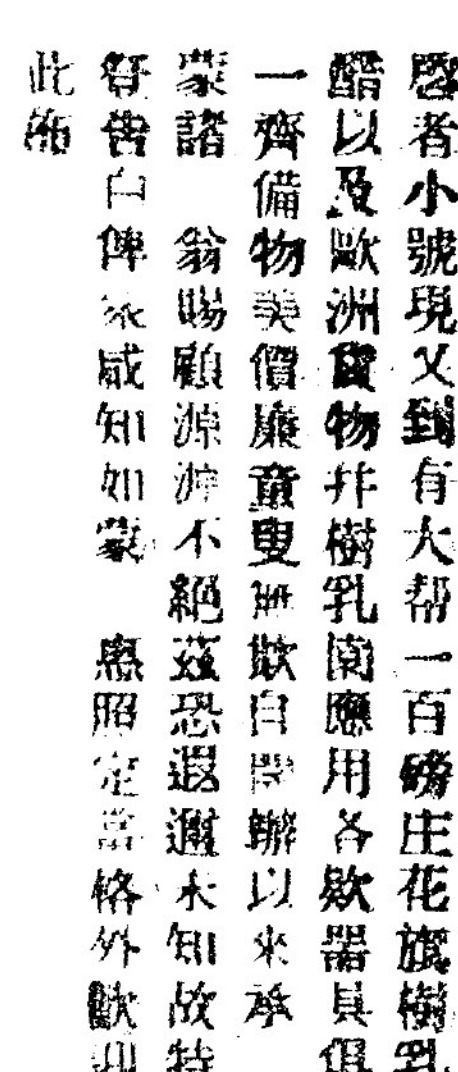 啓者小號現又到有大帮一百磅庄花旗樹乳
醋以及歐洲貨物并樹乳園應用各欵器具俱
一齊備物美價廉童叟無欺自開辦以來承
蒙諸翁賜顧源源不絕茲恐遐邇未知故特
登告白俾衆咸知如蒙惠照定當格外歡迎
此佈